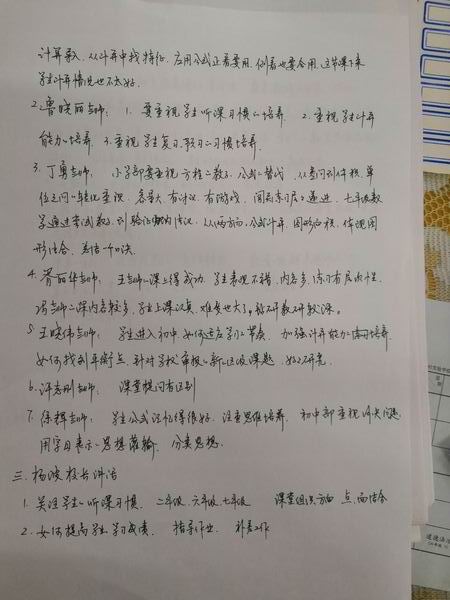 计算导入,从计算中找特征,应用公式正着要用,倒着也要会用,这节课下来
学生计算情况也不太好。
2.鲁晓丽老师: 1. 要重视学生听课习惯的培养 2. 重视学生计算
能力的培养 3. 重视学生复习、预习的习惯培养.
3. 丁勇老师: 小学部要重视方程的教学,公式的替代,从面积到体积,单
位之间的转化意识,容量大,有讨论,有游戏,阅读练习层层递进,七年级数
学通过尝试教学,到验证归纳结论,从两方面,公式计算,图形面积,体现图
形结合,总结一个口决.
4. 乔丽华老师: 王老师的课上得成功,学生表现不错,内容多,练习有层次性.
冯老师的课内容较多,学生上课认真,难度也大了,教研教研较深.
5. 王晓伟老师: 学生进入初中如何适应学习的节奏,加强计算能力的培养
如何找到平衡点,针对学校审报的新区级课题,好好研究.
6. 汪志刚老师: 课堂提问有区别
7. 徐辉老师: 学生公式记忆得很好,注重思维培养,初中部重视消失问题
用字母表示的思想灌输,分类思想.
三. 杨波校长讲话
1. 关注学生的听课习惯,二年级,六年级,七年级 课堂组织方面 点,面结合
2. 如何提高学生学习成绩. 指导作业 补差工作